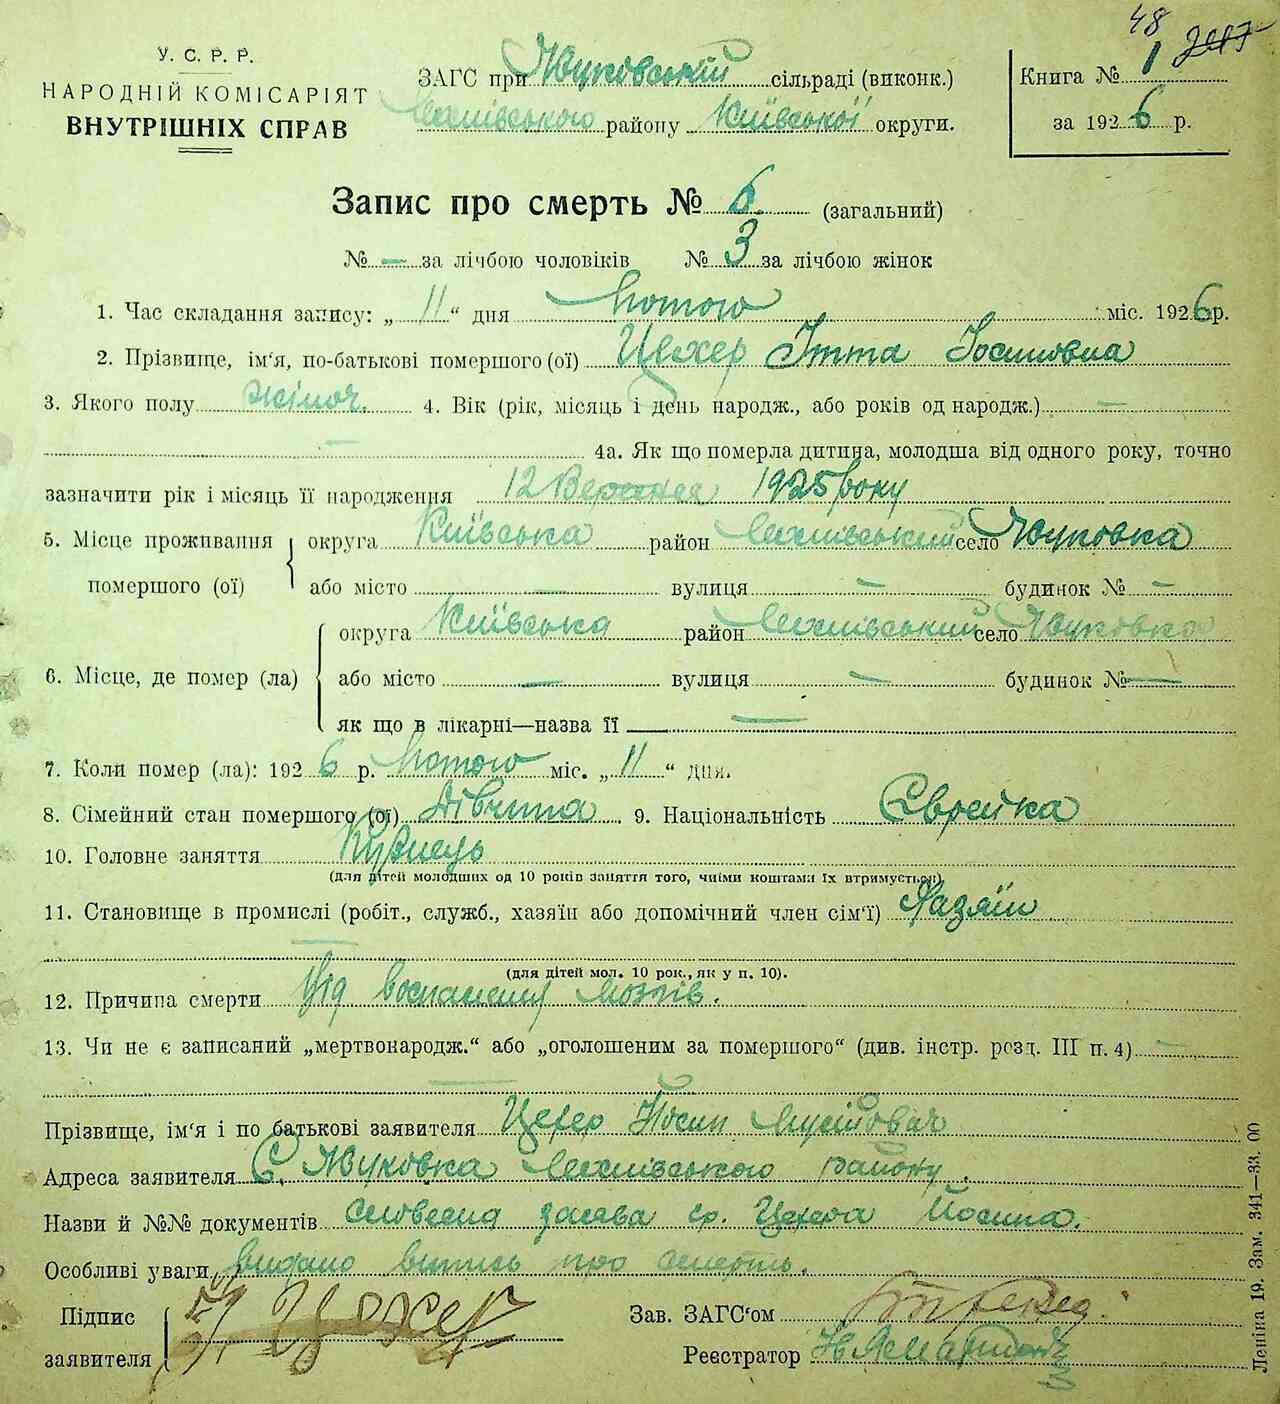 48
У. С. Р. Р.
НАРОДНІЙ КОМІСАРІЯТ
ВНУТРІШНІХ СПРАВ
ЗАГС при Жуковський сільраді (виконк.)
району Київської округи.
Книга № 1
за 1926 р.
Запис про смерть № 6 (загальний)
№ — за лічбою чоловіків № 3 за лічбою жінок
1. Час складання запису: „ 11 “ дня Лютого міс. 1926 р.
2. Прізвище, ім‘я, по-батькові помершого (ої) Цехер Ітта Йосиповна
3. Якого полу жіноч. 4. Вік (рік, місяць і день народж., або років од народж.) —
— 4а. Як що померла дитина, молодша від одного року, точно
зазначити рік і місяць її народження 12 Вересня 1925 року
5. Місце проживання помершого (ої) округа Київська район село Жуковка
або місто — вулиця — будинок № —
6. Місце, де помер (ла) округа Київська район село Жуковка
або місто — вулиця — будинок № —
як що в лікарні—назва її —
7. Коли помер (ла): 1926 р. Лютого міс. „ 11 “ дня.
8. Сімейний стан помершого (ої) Дівчина 9. Національність Єврейка
10. Головне заняття Кравець
(для дітей молодших од 10 років заняття того, чиїми коштами їх втримується)
11. Становище в промислі (робіт., служб., хазяїн або допомічний член сім‘ї) Хазяїн
(для дітей мол. 10 рок., як у п. 10).
12. Причина смерти Від воспаления мозгів.
13. Чи не є записаний „мертвонародж.“ або „оголошеним за помершого“ (див. інстр. розд. III п. 4) —
Прізвище, ім‘я і по батькові заявителя Цехер Йосип
Адреса заявителя С. Жуковка району.
Назви й №№ документів Словесна заява гр. Цехера Йосипа.
Особливі уваги Видано витись про смерть.
Підпис заявителя Цехер
Зав. ЗАГС‘ом
Реєстратор
Леніна 19. Зам. 341—33. 00